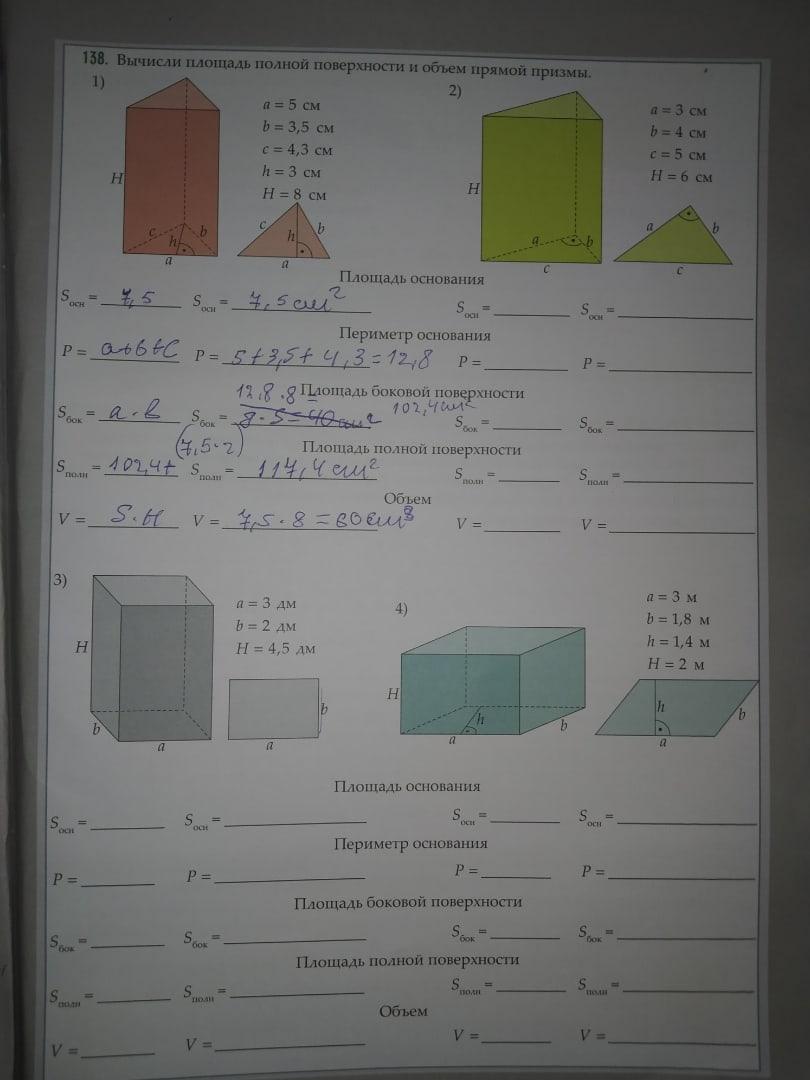 138. Вычисли площадь полной поверхности и объем прямой призмы.
1)
a = 5 см
b = 3,5 см
c = 4,3 см
h = 3 см
H = 8 см
H
c
h
b
a
c
h
b
a
2)
a = 3 см
b = 4 см
c = 5 см
H = 6 см
H
a
b
c
a
b
c
Площадь основания
Sосн = 7,5 Sосн = 7,5 см² Sосн = Sосн =
Периметр основания
P = a+b+c P = 5+3,5+4,3=12,8 P = P =
Площадь боковой поверхности
12,8·8=
Sбок = a·в Sбок = 8·5=40см² 102,4см² Sбок = Sбок =
Площадь полной поверхности
(7,5·2)
Sполн = 102,4+ Sполн = 117,4 см² Sполн = Sполн =
Объем
V = S·H V = 7,5·8=60см³ V = V =
3)
a = 3 дм
b = 2 дм
H = 4,5 дм
H
b
a
b
a
4)
a = 3 м
b = 1,8 м
h = 1,4 м
H = 2 м
H
h
a
b
h
b
a
Площадь основания
Sосн = Sосн = Sосн = Sосн =
Периметр основания
P = P = P = P =
Площадь боковой поверхности
Sбок = Sбок = Sбок = Sбок =
Площадь полной поверхности
Sполн = Sполн = Sполн = Sполн =
Объем
V = V = V = V =